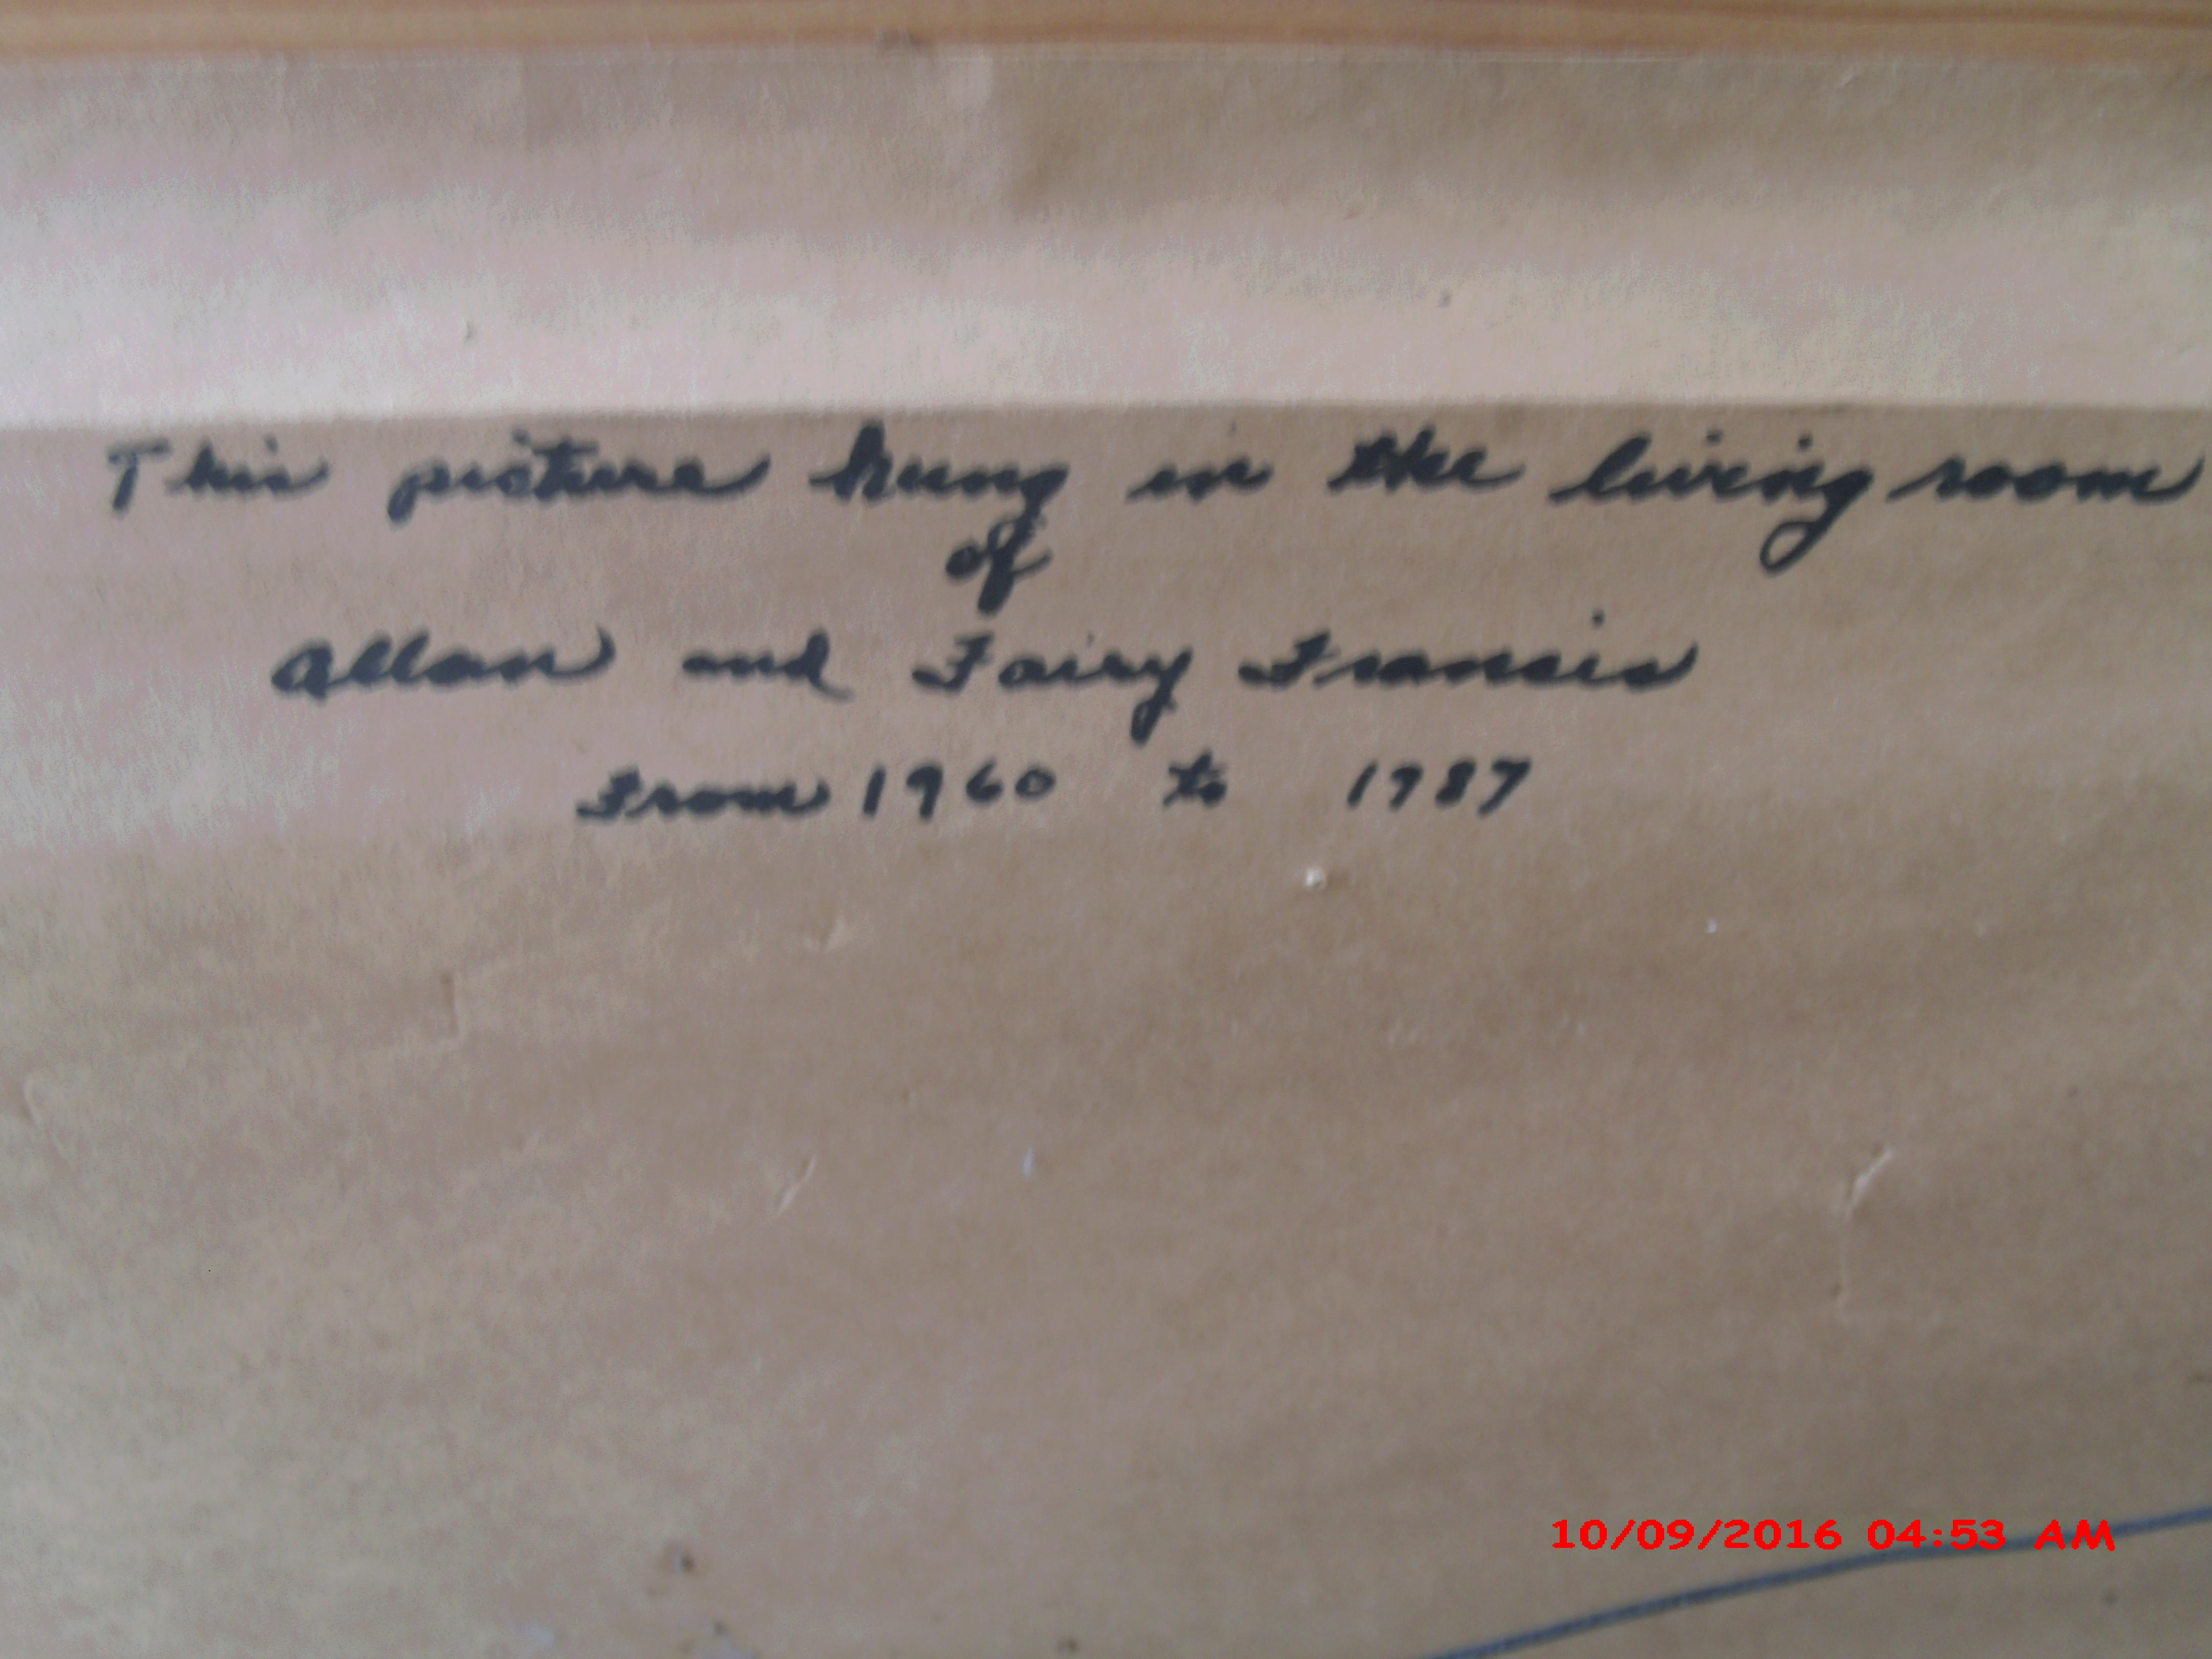 This picture hung in the living room
of
Allan and Fairy Francis
From 1960 to 1987
10/09/2016 04:53 AM